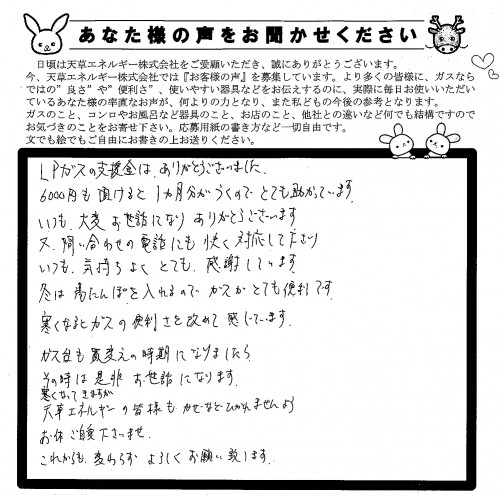 あなた様の声をお聞かせください
日頃は天草エネルギー株式会社をご愛顧いただき、誠にありがとうございます。
今、天草エネルギー株式会社では『お客様の声』を募集しています。より多くの皆様に、ガスなら
ではの”良さ”や”便利さ”、使いやすい器具などをお伝えするのに、実際に毎日お使いいただい
ているあなた様の率直なお声が、何よりの力となり、また私どもの今後の参考となります。
ガスのこと、コンロやお風呂など器具のこと、お店のこと、他社との違いなど何でも結構ですので
お気づきのことをお寄せ下さい。応募用紙の書き方など一切自由です。
文でも絵でもご自由にお書きの上お送りください。
LPガスの支援金は、ありがとうございました。
6000円も頂けると1ヵ月分がうくのでとても助かっています。
いつも、大変お世話になりありがとうございます
又、問い合わせの電話にも快く対応して下さり
いつも、気持ちよくとても、感謝しています。
冬は湯たんぽを入れるのでガスがとても便利です。
寒くなるとガスの便利さを改めて感じています。
ガス台も買変えの時期になりましたら
その時は是非お世話になります。
寒くなってきますが
天草エネルギーの皆様もかぜなどひかれませんよう
お体ご自愛下さいませ。
これからも、変わらずよろしくお願い致します。